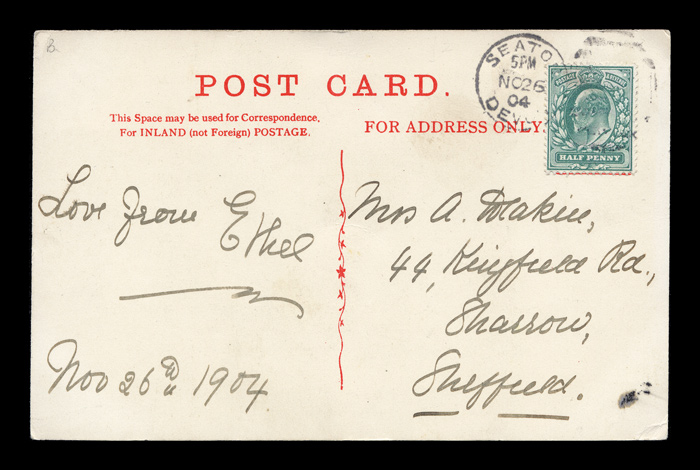 B
POST CARD.
This Space may be used for Correspondence.
For INLAND (not Foreign) POSTAGE.
FOR ADDRESS ONLY.
SEATON
5PM
NO 26
04
DEVON
HALF PENNY
Love from Ethel
Nov 26th 1904.
Mrs A. Deakin,
44, Kingfield Rd.,
Sharrow,
Sheffield.